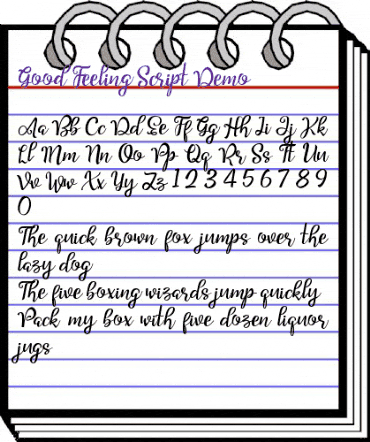 Good Feeling Script Demo
Aa Bb Cc Dd Ee Ff Gg Hh Ii Jj Kk
Ll Mm Nn Oo Pp Qq Rr Ss Tt Uu
Vv Ww Xx Yy Zz 1 2 3 4 5 6 7 8 9
0
The quick brown fox jumps over the
lazy dog
The five boxing wizards jump quickly
Pack my box with five dozen liquor
jugs